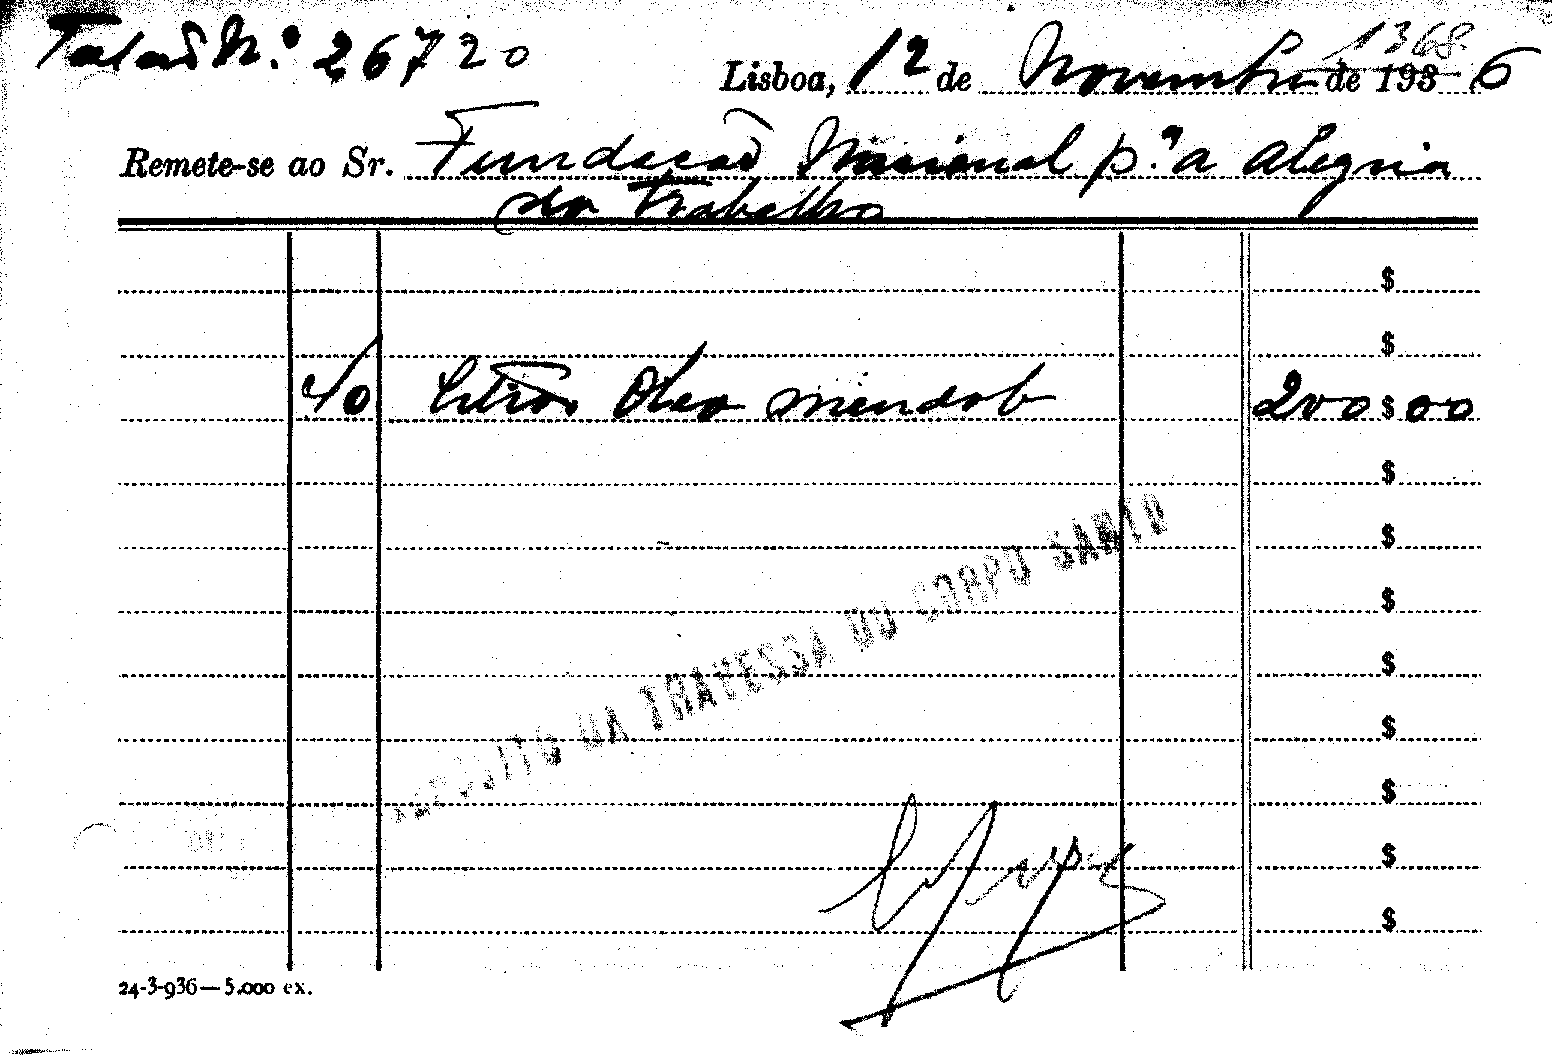 Talão N.º 26720
1368
Lisboa, 12 de Novembro de 1936
Remete-se ao Sr. Fundação Nacional p.ª a Alegria
do Trabalho
$
$
40 Litros Oleo 200$00
$
$
$
$
$
$
$
$
DEPÓSITO DA TRAVESSA DO CORPO SANTO
24-3-936—5.000 ex.